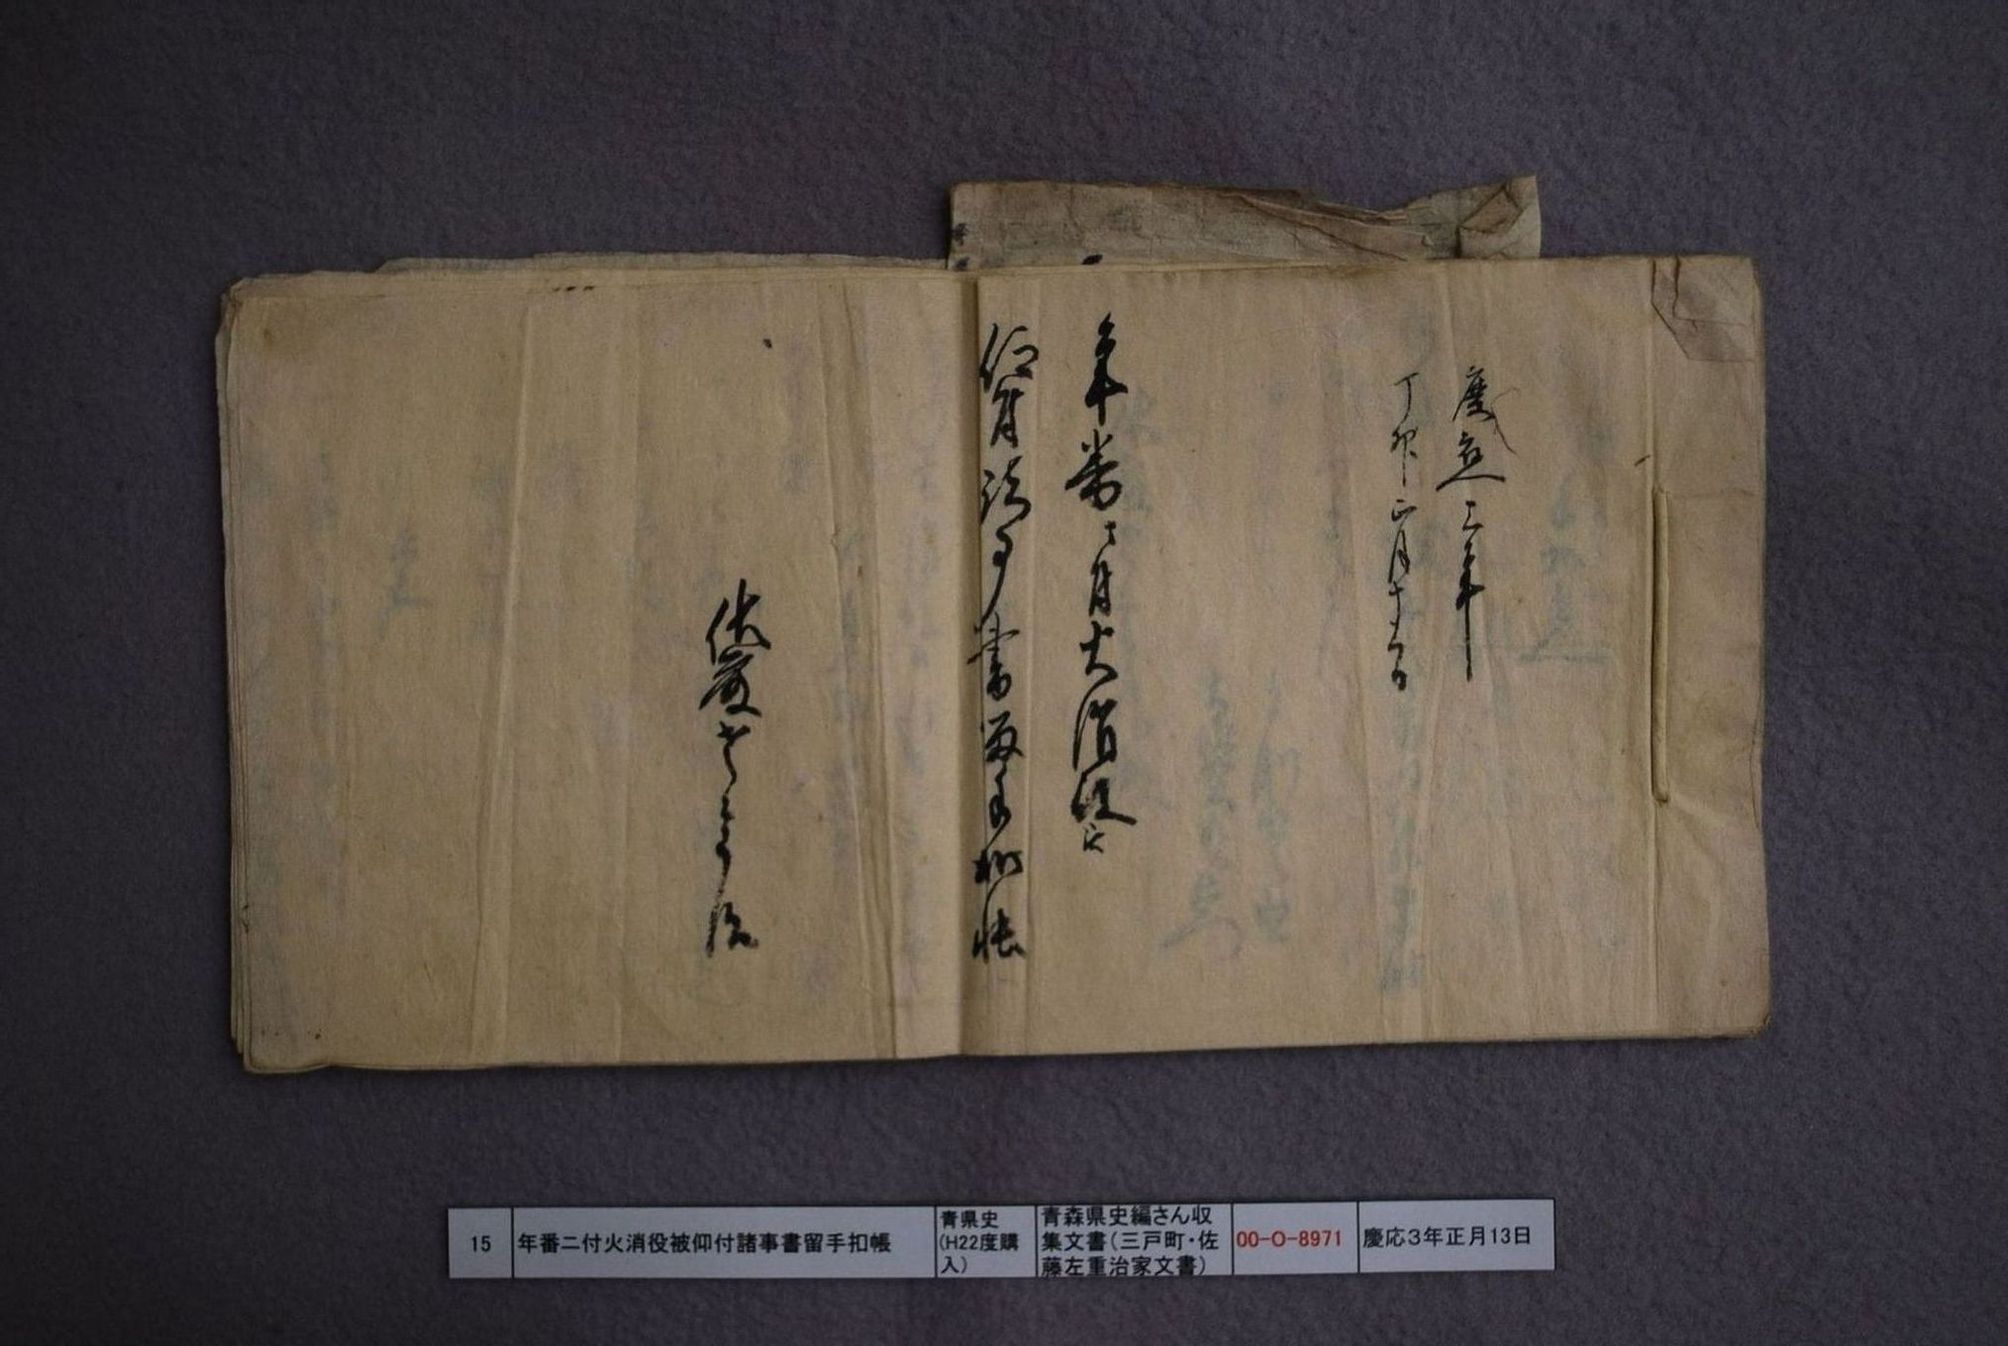 慶应三年
丁卯正月十三日
年番ニ付火消役被
仰付諸事書留手扣帳
佐藤
15
年番ニ付火消役被仰付諸事書留手扣帳
青県史
(H22度購
入)
青森県史編さん収
集文書(三戸町・佐
藤左重治家文書)
00-O-8971
慶応3年正月13日